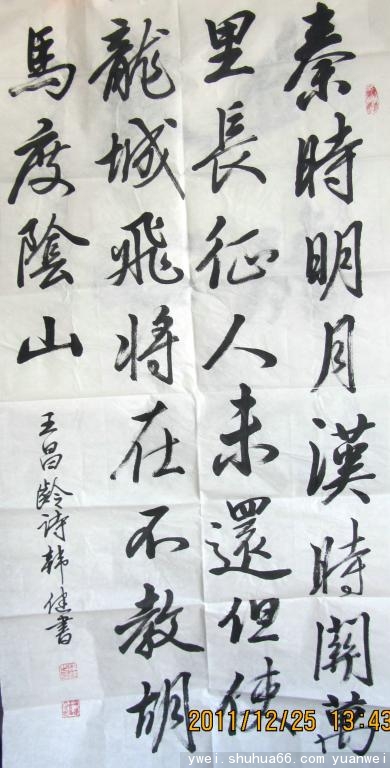 秦時明月漢時關萬
里長征人未還但使
龍城飛将在不教胡
馬度陰山
王昌齡诗韩健書
2011/12/25 13:43
ywei.shuhua66.com/yuanwei